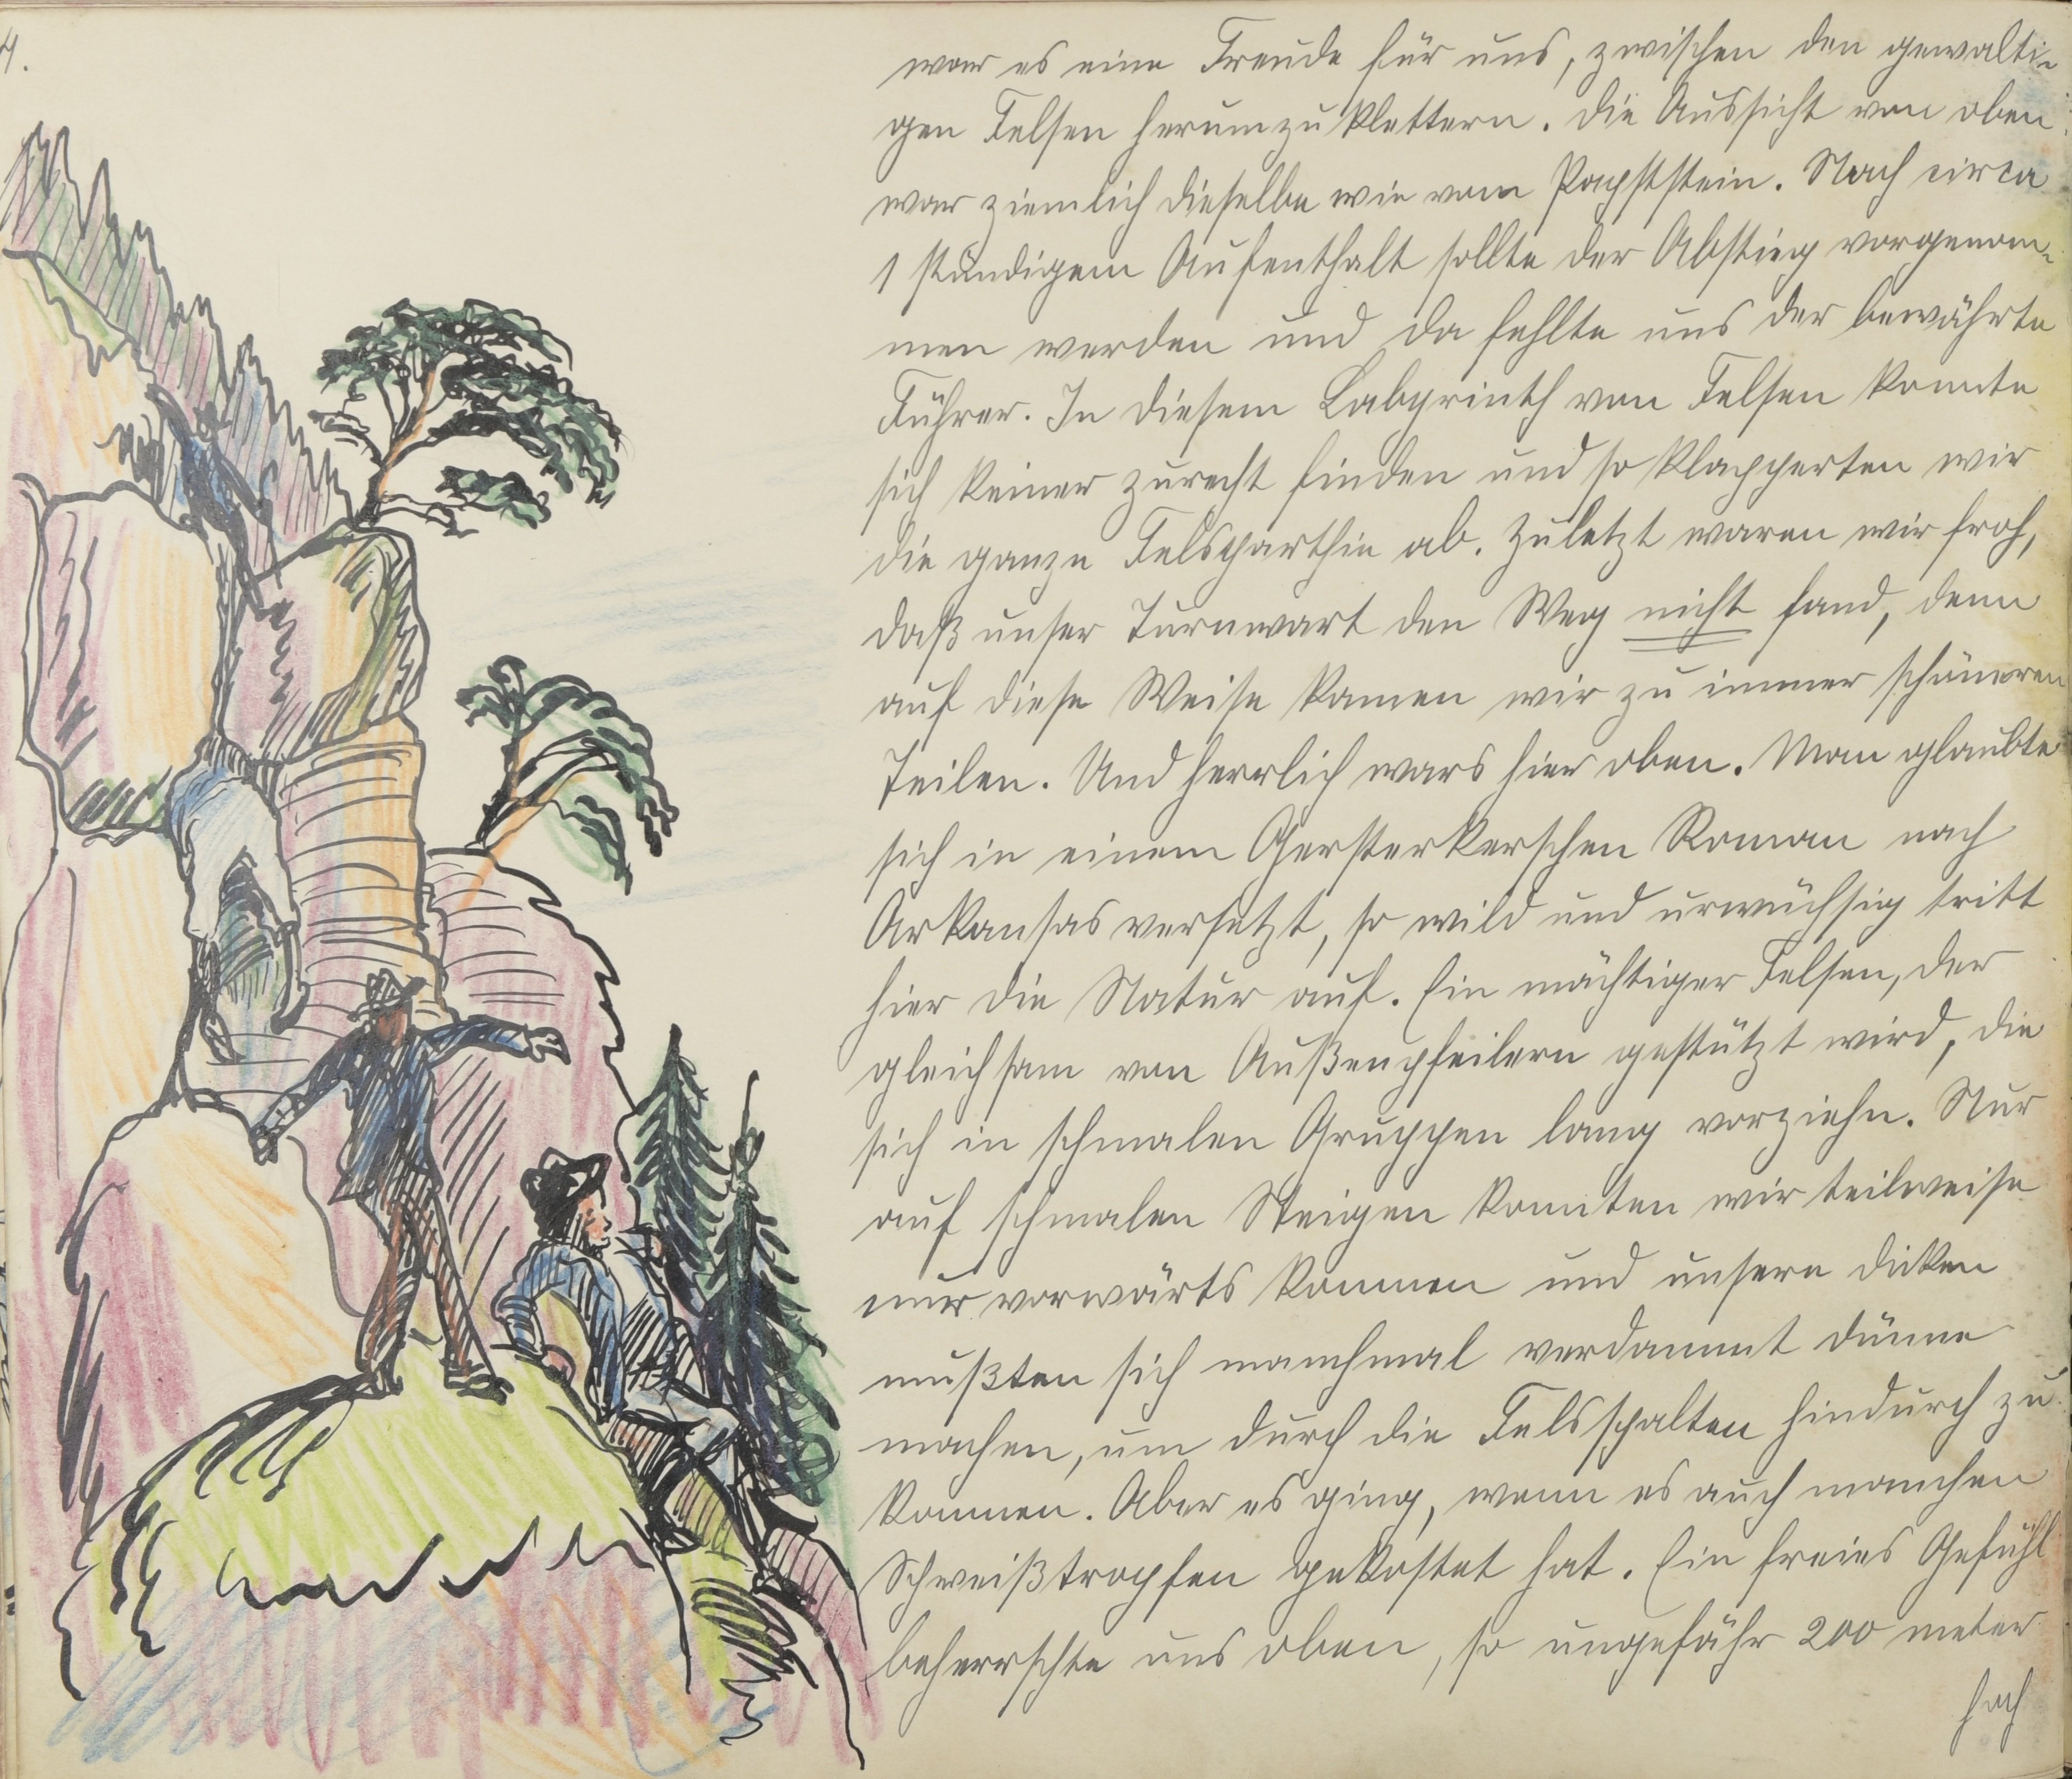 4.
war es eine Freude für uns, zwischen den gewalti-
gen Felsen herumzuklettern. Die Aussicht von oben
war ziemlich dieselbe wie vom Papststein. Nach circa
1 stündigem Aufenthalt sollte der Abstieg vorgenom-
men werden und da fehlte uns der bewährte
Führer. In diesem Labyrinth von Felsen konnte
sich keiner zurecht finden und so klapperten wir
die ganze Felsparthie ab. Zuletzt waren wir froh,
daß unser Turnwart den Weg nicht fand, denn
auf diese Weise kamen wir zu immer schöneren
Teilen. Und herrlich wars hier oben. Man glaubte
sich in einem Gersterkerschen Roman nach
Arkansas versetzt, so wild und urwüchsig tritt
hier die Natur auf. Ein mächtiger Felsen, der
gleichsam von Außenpfeilern gestützt wird, die
sich in schmalen Gruppen lang vorziehn. Nur
auf schmalen Steigen konnten wir teilweise
nur vorwärts kommen und unsere dicken
mußten sich manchmal verdammt dünne
machen, um durch die Felsspalten hindurch zu
kommen. Aber es ging, wenn es auch manchen
Schweißtropfen gekostet hat. Ein freies Gefühl
beherrschte uns oben, so ungefähr 200 meter
hoch